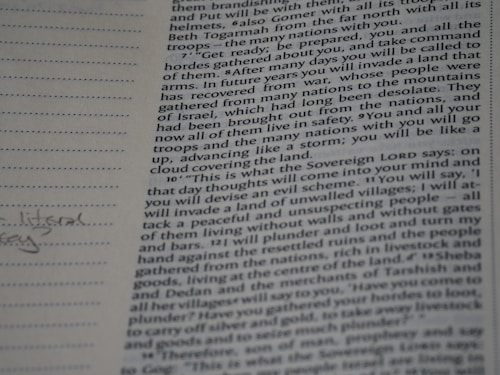 them brandishing
and Put will be with them, a
helmets, 6also Gomer with all its troops,
Beth Togarmah from the far north with all its
troops – the many nations with you.
7 ' "Get ready; be prepared, you and all the
hordes gathered about you, and take command
of them. 8After many days you will be called to
arms. In future years you will invade a land that
has recovered from war, whose people were
gathered from many nations to the mountains
of Israel, which had long been desolate. They
had been brought out from the nations, and
now all of them live in safety. 9You and all your
troops and the many nations with you will go
up, advancing like a storm; you will be like a
cloud covering the land.
10 ' "This is what the Sovereign LORD says: on
that day thoughts will come into your mind and
you will devise an evil scheme. 11You will say, 'I
will invade a land of unwalled villages; I will at-
tack a peaceful and unsuspecting people – all
of them living without walls and without gates
and bars. 12I will plunder and loot and turn my
hand against the resettled ruins and the people
gathered from the nations, rich in livestock and
goods, living at the centre of the land.' 13Sheba
and Dedan and the merchants of Tarshish and
all her villages will say to you, 'Have you come to
plunder? Have you gathered your hordes to loot,
to carry off silver and gold, to take away livestock
and goods and to seize much plunder?'
14 'Therefore, son of man, prophesy and say
to Gog: "This is what the Sovereign LORD says:
my people Israel are living in
literal